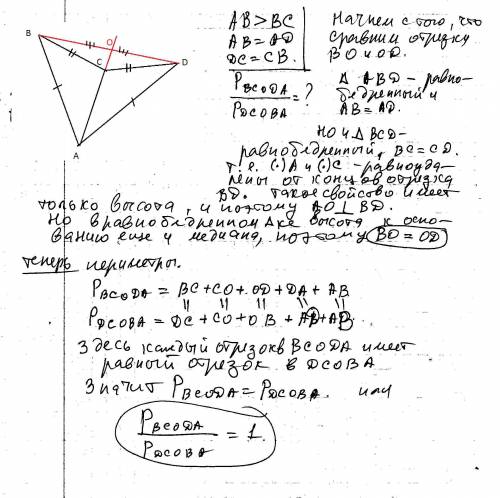 B
O
C
D
A
AB > BC
AB = AD
DC = CB.
P BCODA / P DCOBA = ?
Начнем с того, что
сравним отрезки
BO и OD.
Δ ABD – равно-
бедренный и
AB = AD.
НО и Δ BCD –
равнобедренный, BC = CD.
т.е. (·)A и (·)C – равноуда-
лены от концов отрезка
BD. Такое свойство имеет
только высота, и поэтому AO ⊥ BD.
Но в равнобедренном Δке высота к осно-
ванию еще и медиана, поэтому BO = OD
теперь периметры.
P BCODA = BC + CO + OD + DA + AB
P DCOBA = DC + CO + OB + AD + AB.
Здесь каждый отрезок в BCODA имеет
равный отрезок в DCOBA
Значит P BCODA = P DCOBA. или
P BCODA / P DCOBA = 1.